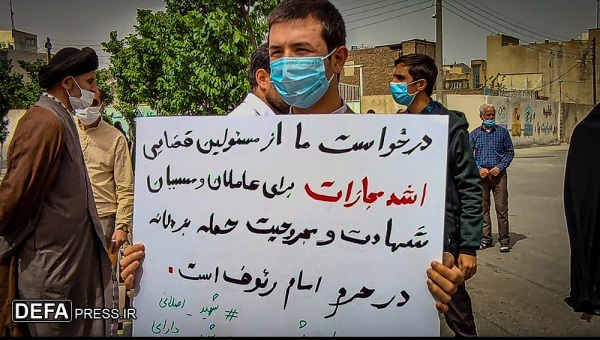 درخواست ما از مسئولین قضایی
اشد مجازات برای عاملان و مسببان
شهادت و مجروحیت حمله بزدلانه
در حرم امام رئوف است.
# شهید_اصلانی
شهید دارای
DEFAPRESS.IR